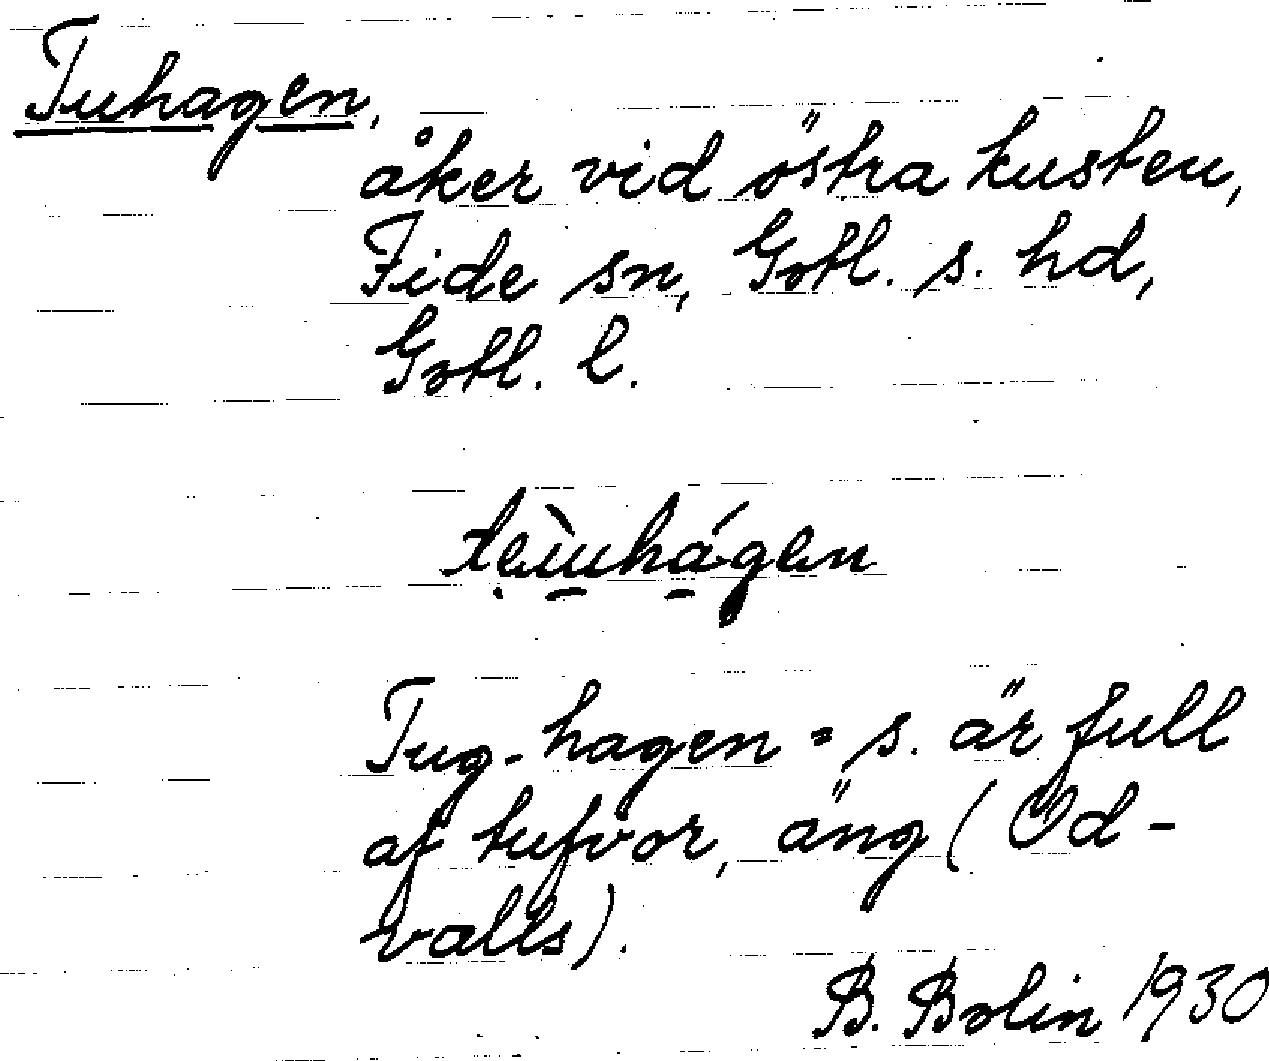 Tuhagen,
åker vid östra kusten,
Fide sn, Gotl. s. hd,
Gotl. l.
Tug-hagen = s. är full
af tufvor, äng (Od-
valls).
B. Bolin 1930